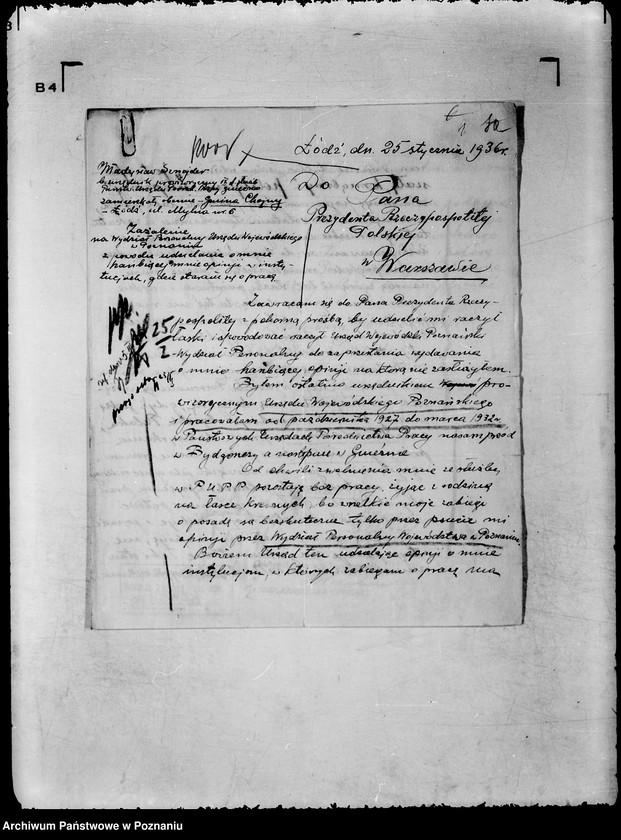 B4
1 30
Łódź, dn. 25 stycznia 1936 r.
Władysław
b. urzędnik prowizoryczny
zamieszkały obecnie - Gmina Chojny
- Łódź, ul. Mylna nr. 6
Do Pana
Prezydenta Rzeczypospolitej
Polskiej
w Warszawie
Zażalenie
na Wydział Personalny Urzędu Wojewódzkiego
w Poznaniu
z powodu udzielania o mnie
hańbiącej mnie opinji w insty-
tucjach, gdzie staram się o pracę
Zwracam się do Pana Prezydenta Rzeczy-
pospolitej z pokorną prośbą, by udzielić mi raczył
łaski i spowodować raczył Urząd Wojewódzki Poznański
Wydział Personalny do zaprzestania wydawania
o mnie hańbiącej opinji na którą nie zasłużyłem.
25/I
Byłem ostatnio urzędnikiem pro-
wizorycznym Urzędu Wojewódzkiego Poznańskiego
i pracowałem od października 1927 do marca 1932 r.
w Państwowych Urzędach Pośrednictwa Pracy naprzód
w Bydgoszczy a następnie w Gnieźnie
Od chwili zwolnienia mnie ze służby
w P.U.P.P. pozostaję bez pracy, żyjąc z rodziną
na łasce krewnych, bo wszelkie moje zabiegi
o posadę są bezskuteczne tylko przez psucie mi
opinji przez Wydział Personalny Województwa w Poznaniu.
Bowiem Urząd ten udzielając opinji o mnie
instytucjom, w których zabiegam o pracę ma
Archiwum Państwowe w Poznaniu